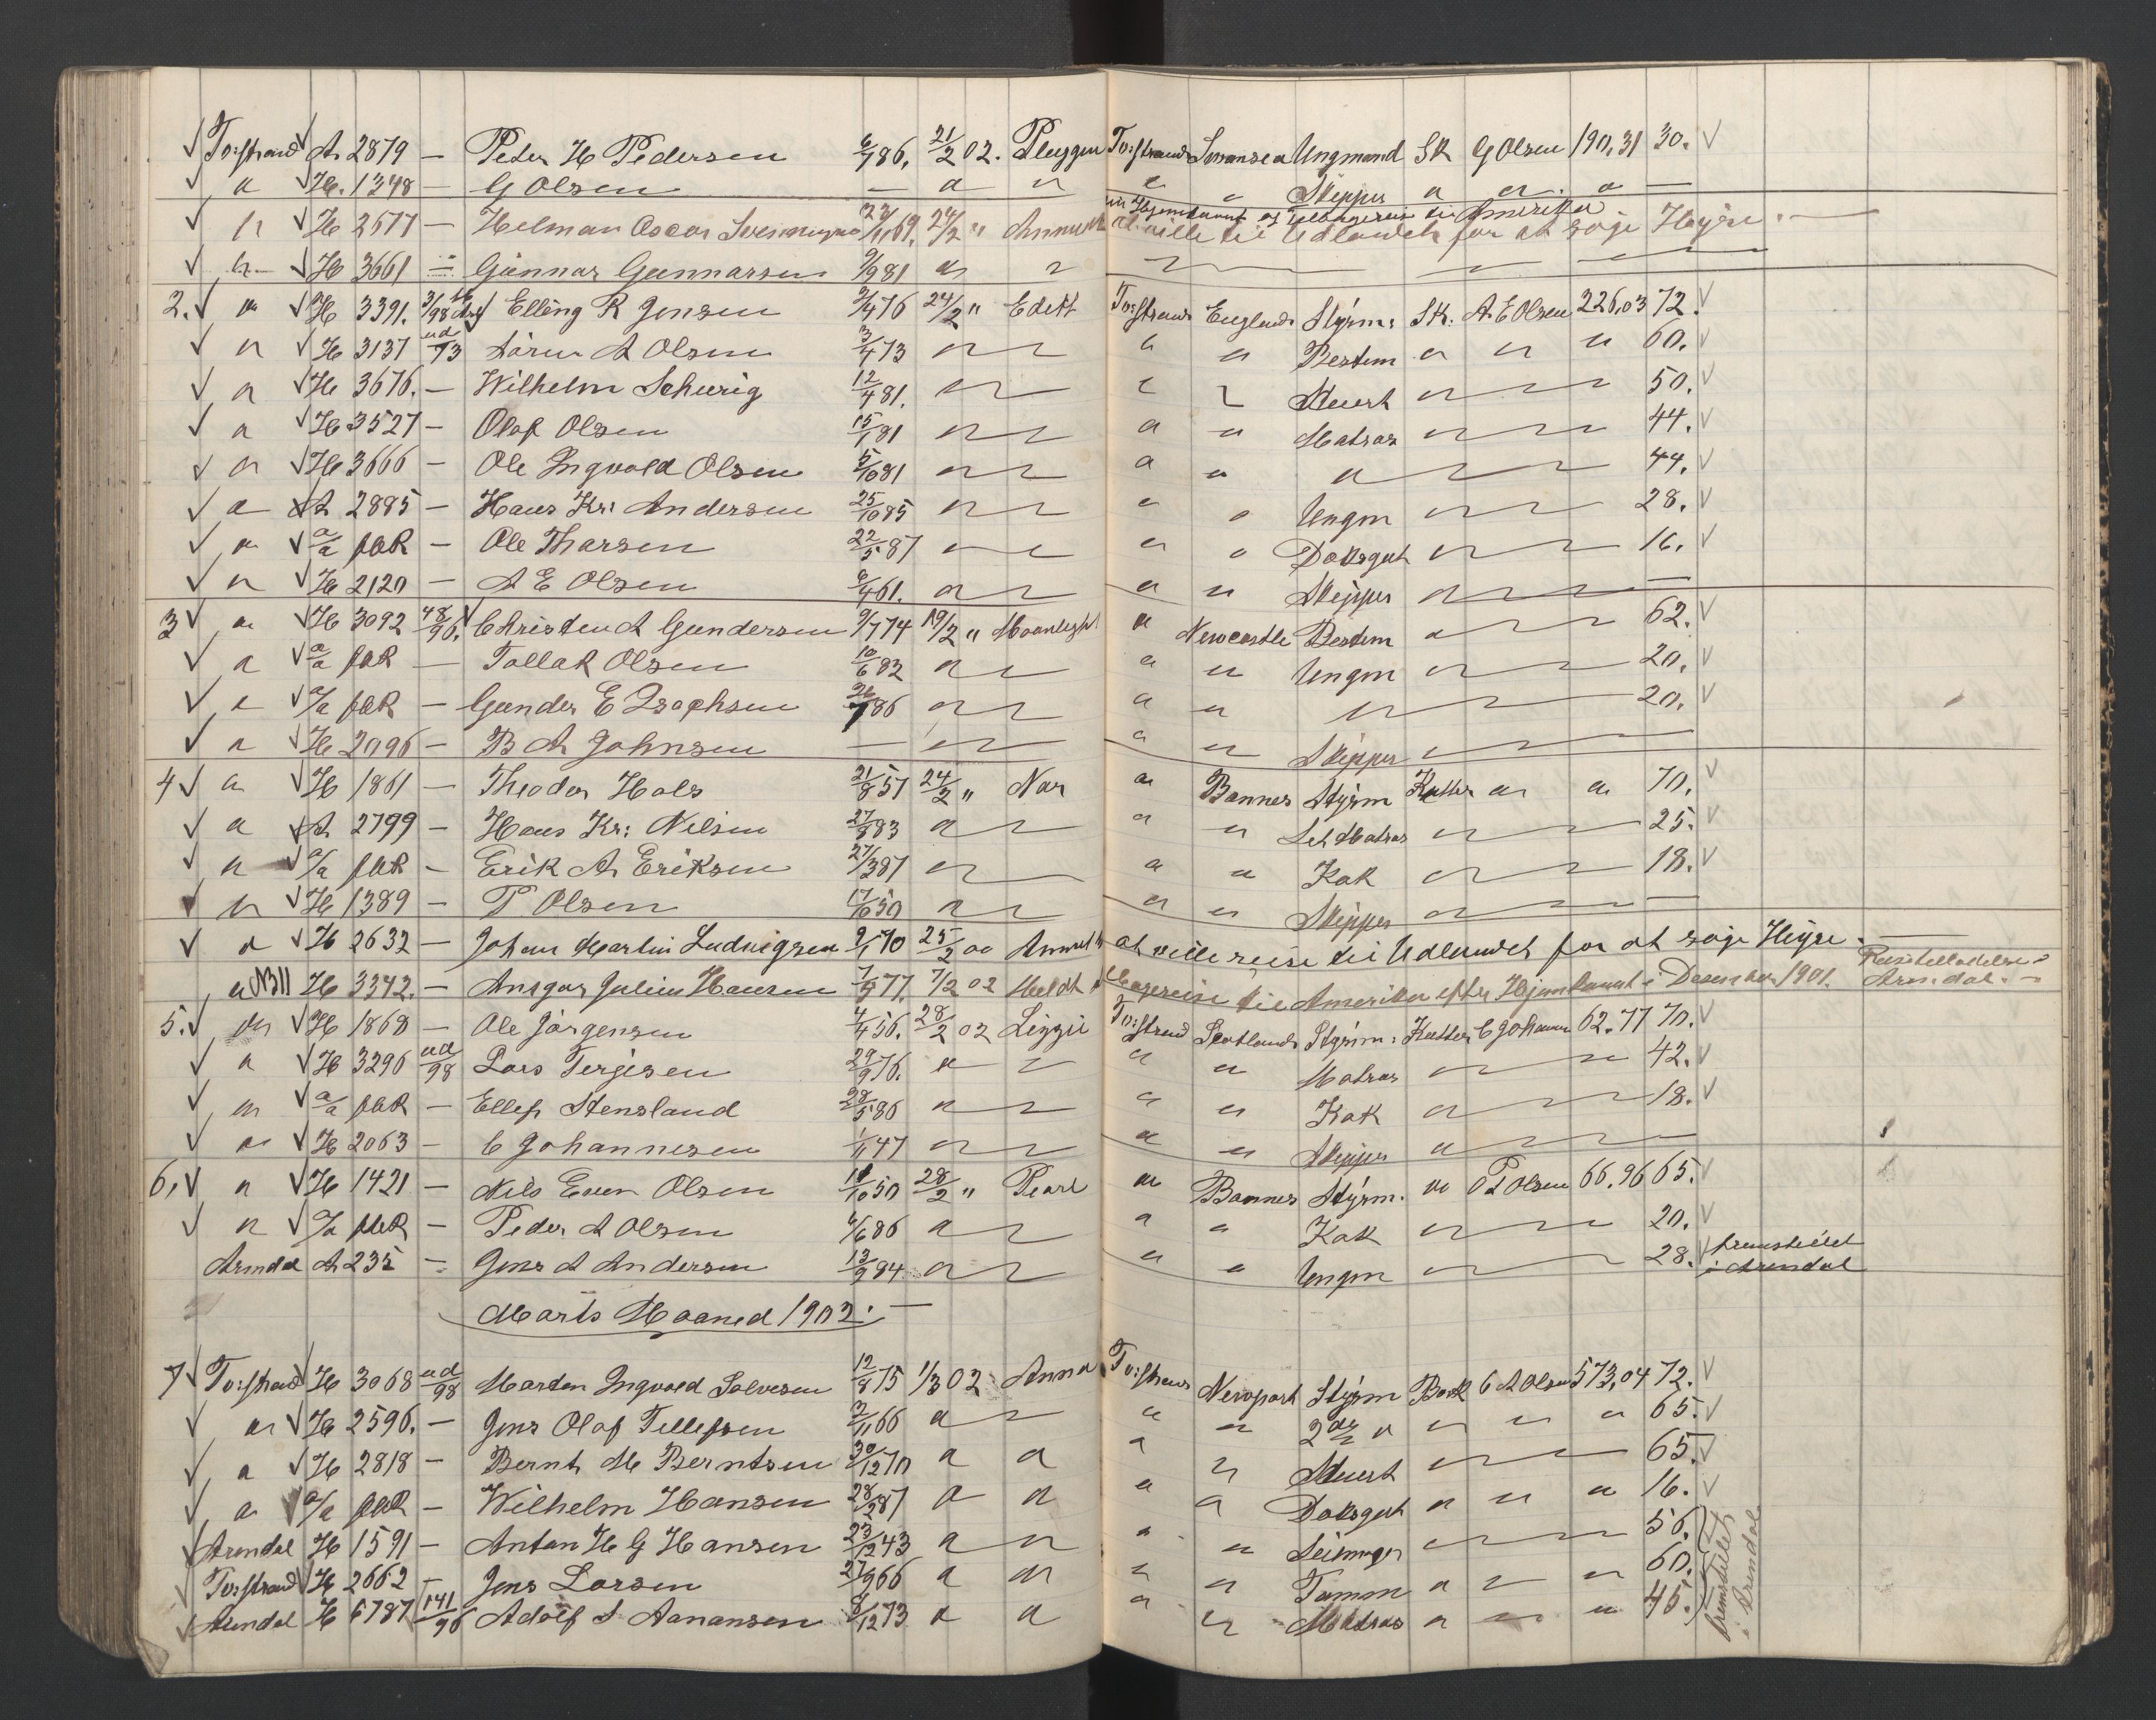 To:strand A 2879 — Peter H Pedersen 6/7 86. 21/2 02. Pluggen To:strand Swansea Ungmand Sk G Olsen 190,31 30.
" H. 1348 — G Olsen — " " " " Skipper " " "
" H 2677 — Helman Oscar 69. 24/2 " til Udlandet for at søge Hyre. —
" H 3661 — Gunnar Gunnarsen 9/9 81 " "
2. " H 3391. Elling R Jensen 76 24/2 " Edith To:strand England Styrm: Sk: A. E Olsen 226,03 72.
" H 3137 ud/93 Søren A Olsen 3/4 73 " " " " Bestm " " " 60.
" H 3676. — Wilhelm Schurig 12/4 81. " " " " Stuert " " 50.
" H 3527 — Olaf Olsen 15/1 81 " " " " Matros " " 44.
" H 3666 — Ole Ingvald Olsen 5/10 81 " " " " " " 44.
" A 2885 — Hans Kr: Andersen 25/10 85 " " " " Ungm " " 28.
" a/a pak — Ole Tharsen 22/5 87 " " " " Daksgut " " 16.
" H 2120 — A E Olsen 6/4 61. " " " " Skipper " "
3 " H 3092 48/96. Christen A Gundersen 9/7 74 19/2 " Moonlight " Newcastle Bestm " 62.
" a/a pak — Tallak Olsen 10/6 82 " " " " Ungm " " 20.
" a/a pak — Gunder E Isachsen 26/7 86 " " " " " 20.
" H 2096 — B A Johnsen — " " " " Skipper "
4 " H 1861 — Theodor Hals 21/8 51 24/2 " Nar " Bannes Styrm Kutter " " 70.
" A 2799 — Hans Kr: Nilsen 27/8 83 " " " " Let Matros " 25.
" a/a pak — Erik A Eriksen 27/3 87 " " " Kok " " 18.
" H 1389 — P Olsen 17/10 50 " " " " Skipper " "
" H 2632 — Johan Martin Ludvigsen 9/1 70 25/2 00 at ville reise til Udlandet for at søge Hyre. —
" NB H 3342. — Ansgar Julius Hansen 7/5 77. 7/2 02 Meldt til Amerika efter Hjemkomst i Desember 1901. Reisetilladelse Arendal. —
5. " H 1868 — Ole Jørgensen 4/4 56. 28/2 02 Lizzie To:strand Scotland Styrm: Kutter C Johannes 62.77 70.
" H 3296 ud/98 Lars Terjesen 29/9 76. " " " " Matros " 42.
" a/a pak — Ellef Stensland 28/5 86 " " " " Kok " " 18.
" H 2063 — C Johannesen 1/1 47 " " " " Skipper " "
6. " H 1421 — Nils Even Olsen 18/10 50 28/2 " Pearl " Bannes Styrm. " P A Olsen 66.96 65.
" a/a pak — Peder A Olsen 4/6 86 " " " " Kok " " 20.
Arendal A 235 — Jens A Andersen 13/9 84 " " " " Ungm " " 28. fremstillet i Arendal
Marts Maaned 1902. —
7 To:strand H 3068 ud/98 Morten Ingvald Salvesen 12/8 75 1/3 02 Anna To:strand Newport Styrm Bark C A Olsen 573,04 72.
" H 2596. — Jens Olaf Tellefsen 2/11 66 " " " " 2den " " " " 65.
" H 2818 — Bernt M Berntsen 30/12 70 " " " " Stuert " " 65.
" a/a pak — Wilhelm Hansen 28/2 87 " " " " Daksgut " " " 16.
Arendal H 1591 — Anton H G Hansen 23/12 43 " " " " " 56.
To:strand H 2662 — Jens Larsen 27/9 66 " " " " Tømm " " " 60.
Arendal H 6787 141/96 Adolf S Aanansen 8/12 73 " " " " Matros " " " 45. fremstillet i Arendal